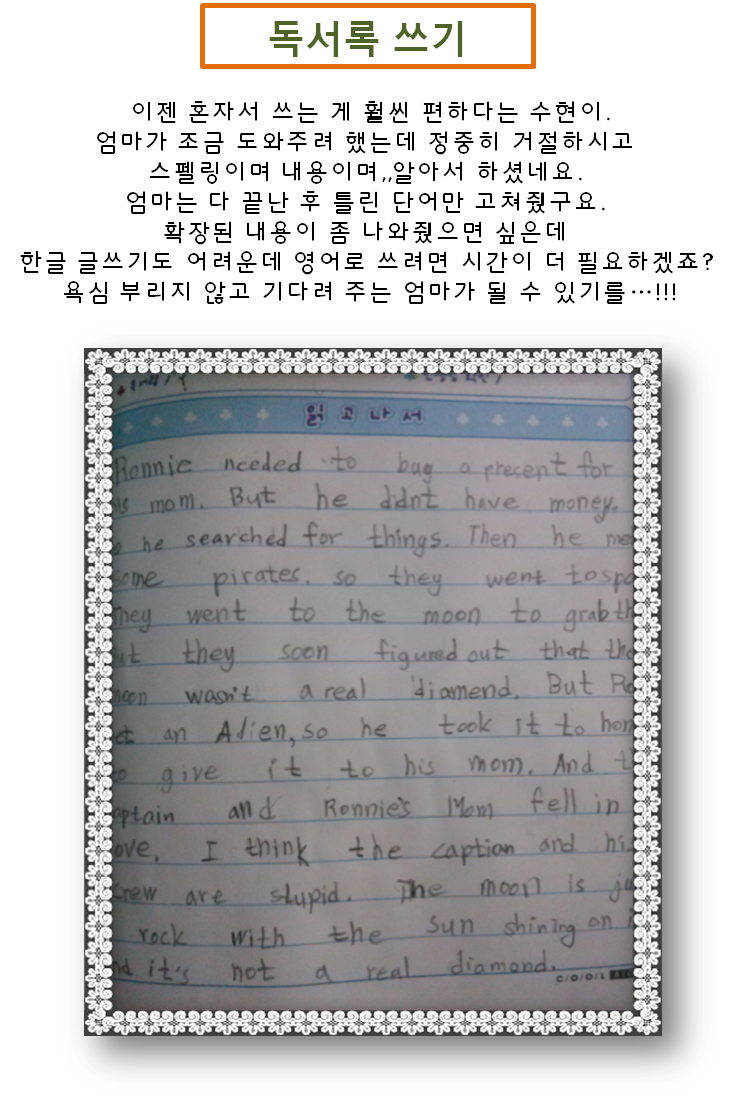 독서록 쓰기
이젠 혼자서 쓰는 게 훨씬 편하다는 수현이.
엄마가 조금 도와주려 했는데 정중히 거절하시고
스펠링이며 내용이며,,알아서 하셨네요.
엄마는 다 끝난 후 틀린 단어만 고쳐줬구요.
확장된 내용이 좀 나와줬으면 싶은데
한글 글쓰기도 어려운데 영어로 쓰려면 시간이 더 필요하겠죠?
욕심 부리지 않고 기다려 주는 엄마가 될 수 있기를…!!!
읽고나서
Ronnie needed to bug a present for
mom. But he didnt have money.
he searched for things. Then he me
some pirates. so they went to spa
They went to the moon to grab th
ut they soon figured out that the
moon wasn't a real diamend. But Ro
et an Alien, so he took it to hom
to give it to his mom. And t
aptain and Ronnie's Mom fell in
ove. I think the caption and his
crew are stupid. The moon is ju
rock with the sun shining on i
nd it's not a real diamond.
C/O/O/L